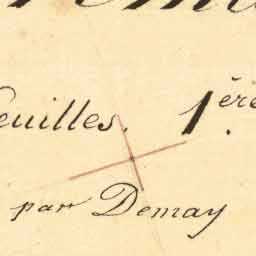 feuilles. 1ère
par Demay